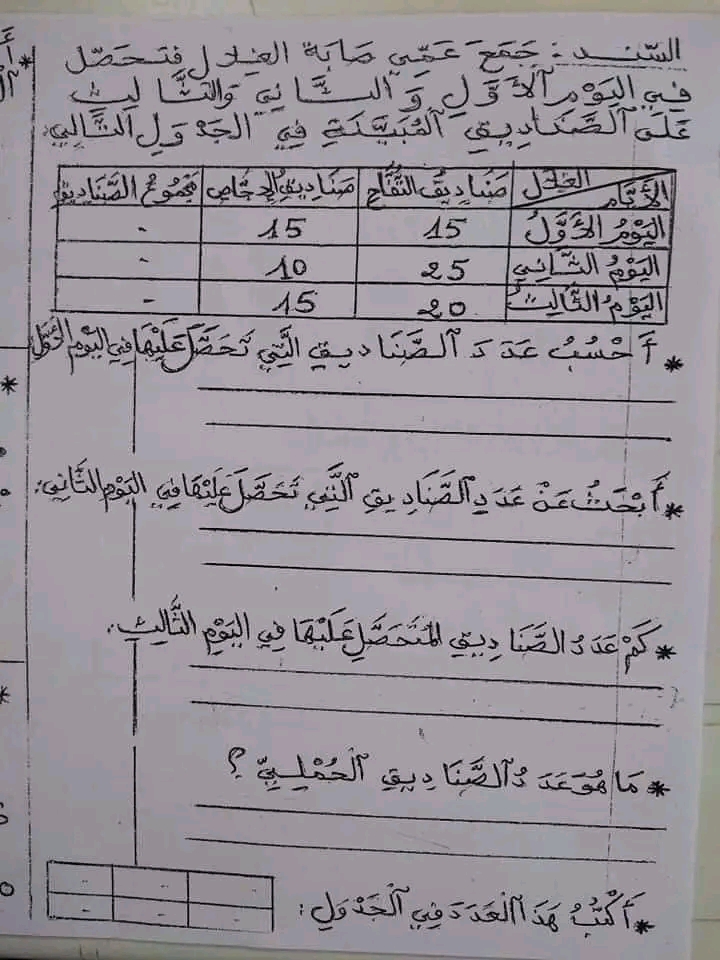 السّند : جَمَعَ عَمِّي صَابَةَ الغِلالِ فَتَحَصَّلَ
فِي اليَوْمِ الأَوَّلِ وَ الثَّانِي وَالثَّالِثِ
عَلَى الصَّنَادِيقِ المُبَيَّنَةِ فِي الجَدْوَلِ التَّالِي:
الغلال الأيّام صَنَادِيقُ التُّفَّاحِ صَنَادِيقُ الإجّاص مَجْمُوعُ الصَّنَادِيقِ
اليَوْمُ الأَوَّلُ 15 15 -
اليَوْمُ الثَّانِي 25 10 -
اليَوْمُ الثَّالِثُ 20 15 -
* أَحْسُبُ عَدَدَ الصَّنَادِيقِ الَّتِي تَحَصَّلَ عَلَيْهَا فِي اليَوْمِ الأَوَّلِ
* أَبْحَثُ عَنْ عَدَدِ الصَّنَادِيقِ الَّتِي تَحَصَّلَ عَلَيْهَا فِي اليَوْمِ الثَّانِي:
* كَمْ عَدَدُ الصَّنَادِيقِ المُتَحَصَّلِ عَلَيْهَا فِي اليَوْمِ الثَّالِثِ:
* مَا هُوَ عَدَدُ الصَّنَادِيقِ الْجُمْلِيِّ ؟
* أَكْتُبُ هَذَا الْعَدَدَ فِي الْجَدْوَلِ :
- - -